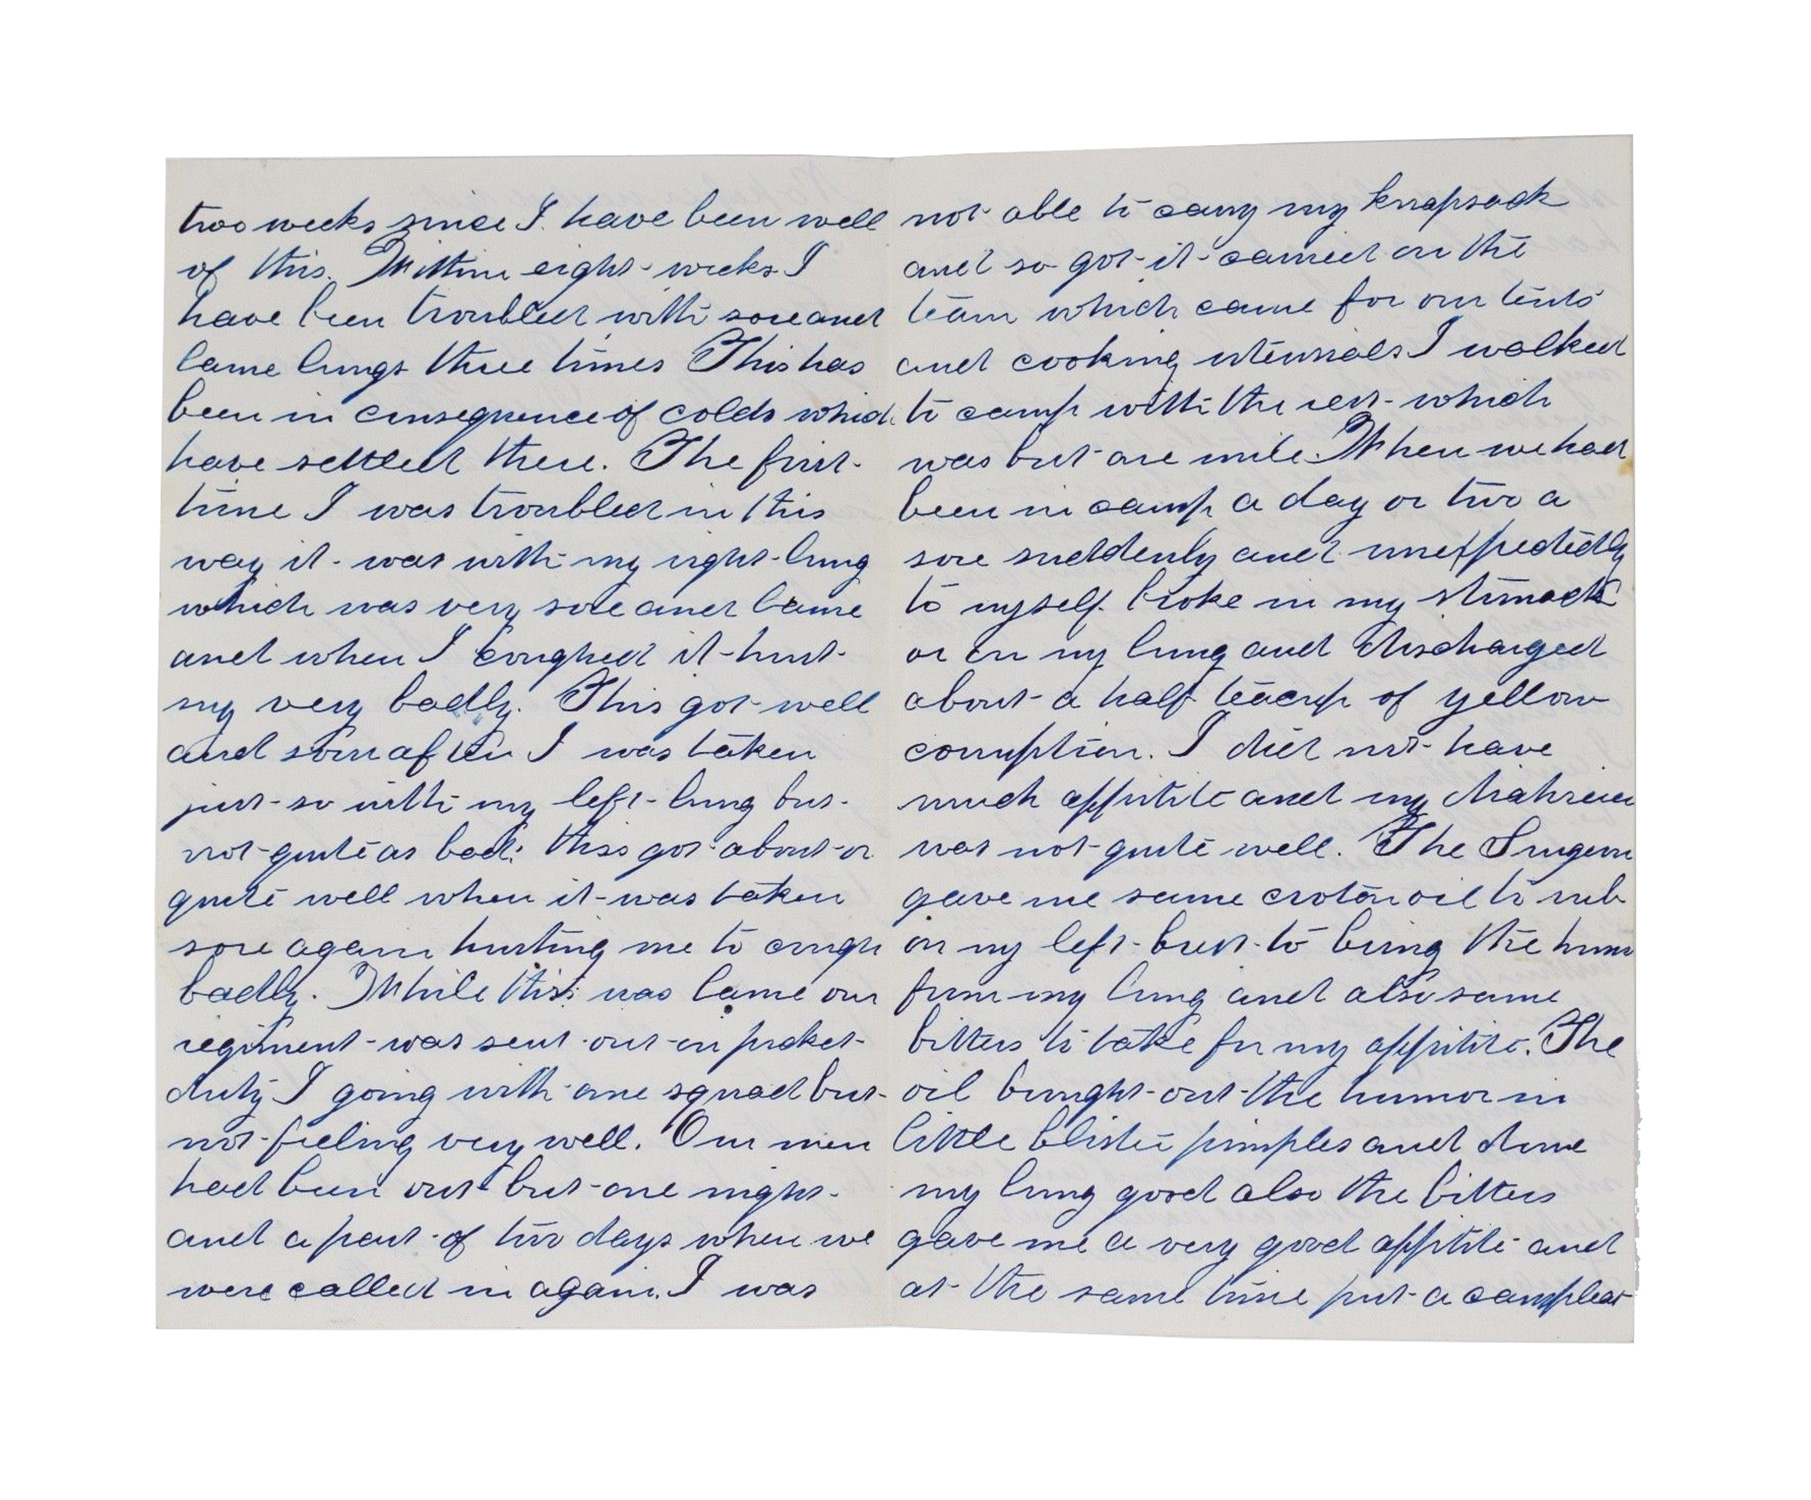 two weeks since I have been well
of this. Within eight weeks I
have been troubled with sore and
lame lungs three times This has
been in consequence of colds which
have settled there. The first
time I was troubled in this
way it was with my right lung
which was very sore and lame
and when I coughed it hurt
my very badly. This got well
and soon after I was taken
just so with my left lung but
not quite as bad: this got about or
quite well when it was taken
sore again hurting me to cough
badly. While this was lame our
regiment was sent out on picket
duty I going with one squad but
not feeling very well. Our men
had been out but one night
and a part of two days when we
were called in again. I was
not able to carry my knapsack
and so got it carried on the
team which came for our tents
and cooking utensials I walked
to camp with the rest which
was but one mile. When we had
been in camp a day or two a
sore suddenly and unexpectedly
to myself broke in my stimack
or on my lung and discharged
about a half teacup of yellow
corruption. I did not have
much appitite and my diahreia
was not quite well. The Surgeon
gave me some croton oil to rub
on my left brest to bring the humor
from my lung and also some
bitters to take for my appitite. The
oil brought out the humor in
little blister pimples and done
my lung good also the bitters
gave me a very good appitite and
at the same time put a compleat